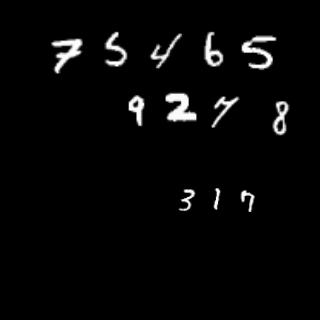 7 5 4 6 5
9 2 7 8
3 1 7